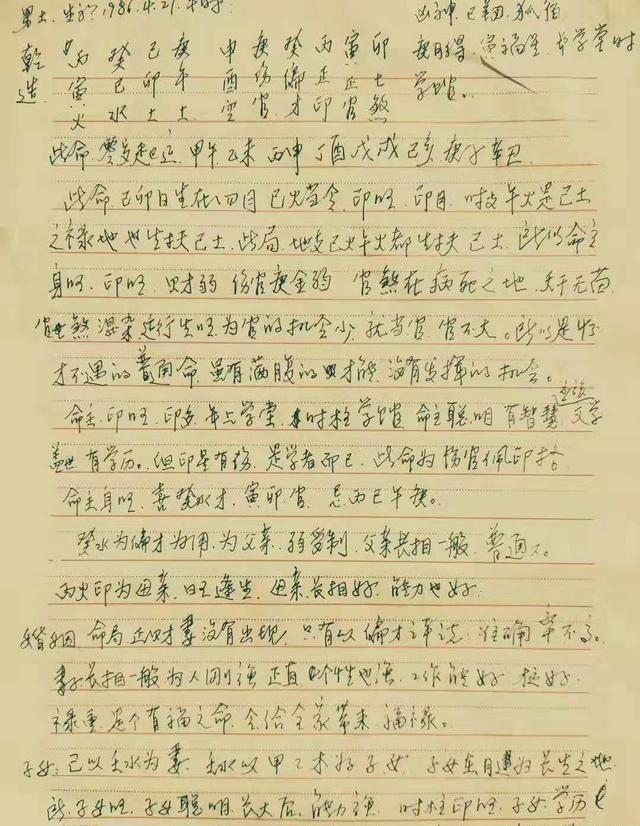 男士.生于1986.4.21.午时 凶神.已
乾 丙癸己庚 申庚癸丙寅卯 庚月得 学堂时
造 寅巳卯午 酉伤偏正正七 学馆。
火水土土 空官才印官煞
此命.零岁起运.甲午乙未丙申丁酉戊戌己亥庚子辛丑
此命.己卯日生在四月巳火当令.印旺.印月.时支午火是己土
之禄地也生扶己土.此局.地支巳火午火都生扶己土.所以命主
身旺.印旺.财弱.伤官庚金弱 官煞在病死之地.天干无苗
官煞混杂运行生旺为官的机会少.就当官.官不大。所以是怀
才不遇的普通命.虽有满腹的财才能.没有发挥的机会。
命主.印旺.印多.年上学堂.时柱学馆.命主聪明有智慧.文学
有学历。但印星有伤.是学者而已.此命为伤官佩印格
命主身旺.喜癸水才.寅卯官.忌丙巳午铁。
癸水为偏才为用.为父亲.弱受制.父亲长相一般.普通人。
丙火印为母亲.旺逢生.母亲长相好.能力也好.
婚姻.命局正财妻没有出现.只有以偏才详说.准确率不高。
妻子长相一般为人刚强正直.个性也强.工作能好
禄重.是个有福之命.会给全家带来福禄。
子女:己以壬水为妻.壬水以甲乙木好子女.子女在月建妇长生之地
此.子女旺.子女聪明.长大后.能力强.时柱印旺.子女学历